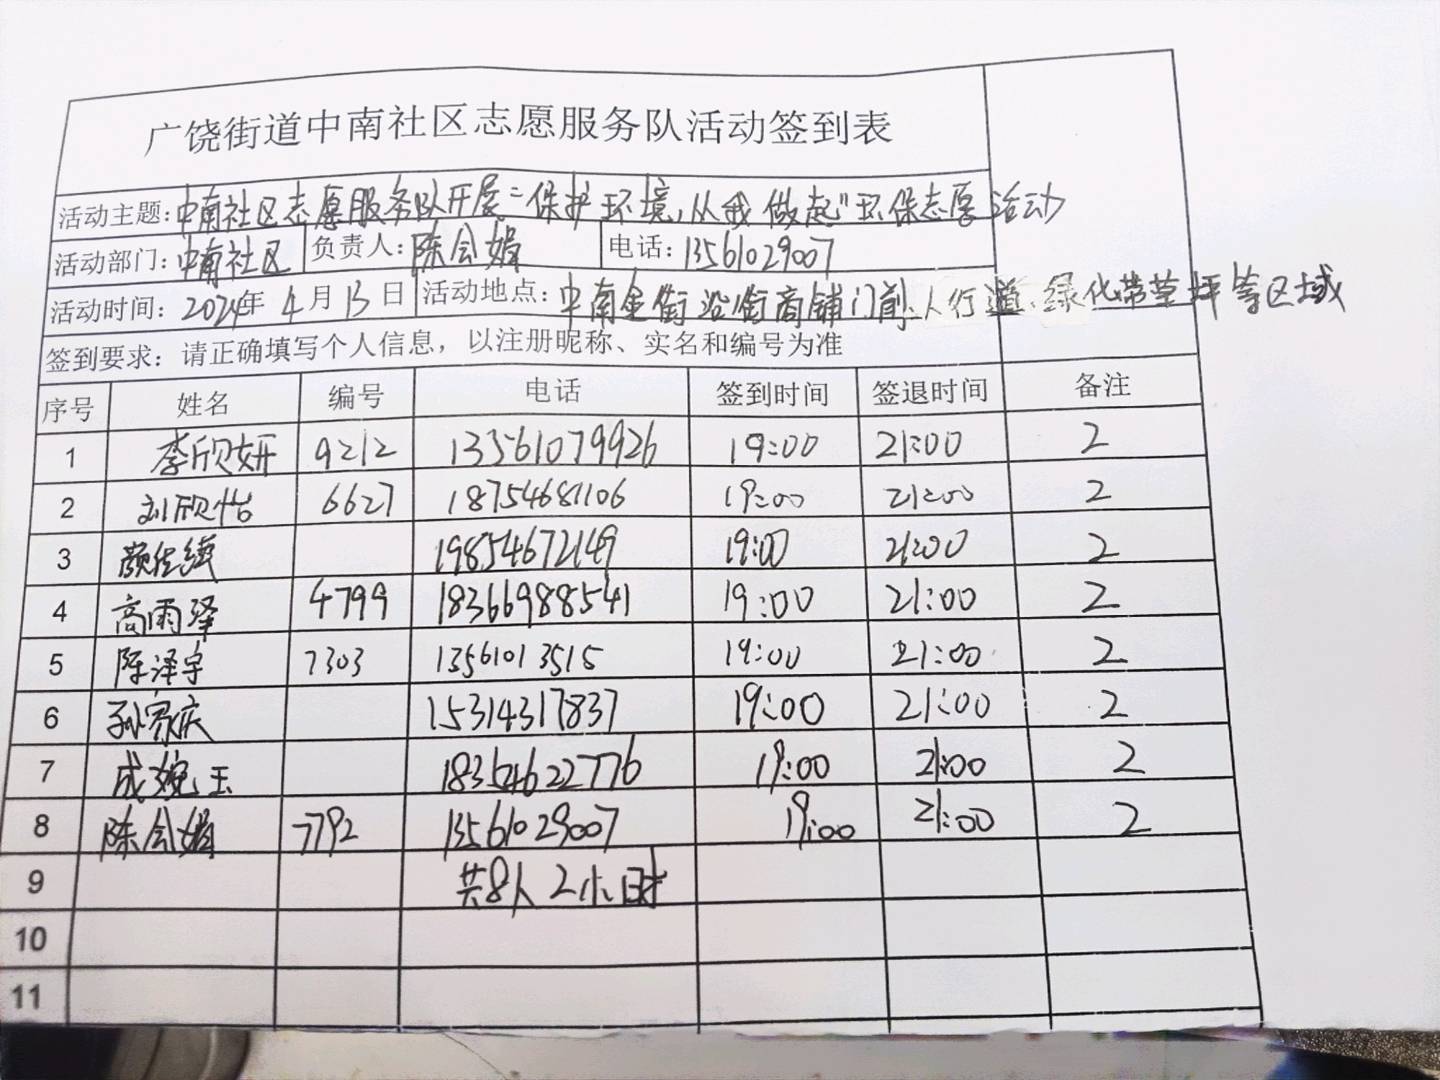 广饶街道中南社区志愿服务队活动签到表
活动主题:中南社区志愿服务队开展"保护环境,从我做起"环保志愿活动
活动部门:中南社区 负责人:陈会娟 电话:13561029007
活动时间:2024年4月13日 活动地点:中南金街沿街商铺门前、人行道、绿化带草坪等区域
签到要求:请正确填写个人信息,以注册昵称、实名和编号为准
序号 姓名 编号 电话 签到时间 签退时间 备注
1 李欣妍 9212 13561079926 19:00 21:00 2
2 刘欣怡 6627 18754681106 19:00 21:00 2
3 颜佳 19854672149 19:00 21:00 2
4 高雨泽 4799 18366988541 19:00 21:00 2
5 陈泽宇 7303 13561013515 19:00 21:00 2
6 孙家庆 15314317837 19:00 21:00 2
7 成婉玉 18354622776 19:00 21:00 2
8 陈会娟 7792 13561029007 19:00 21:00 2
9 共8人2小时
10
11